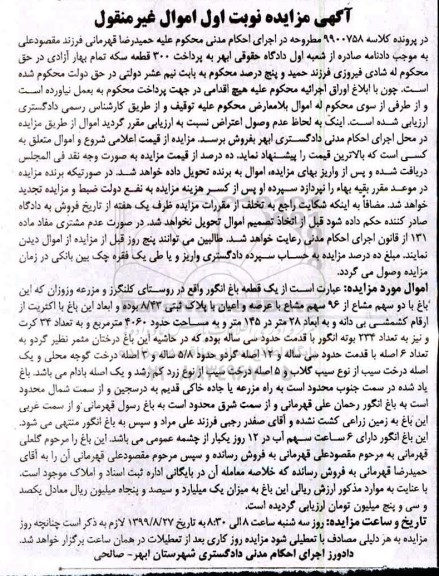 آگهی مزایده نوبت اول اموال غیرمنقول
در پرونده کلاسه ۹۹۰۰۷۵۸ مطروحه در اجرای احکام مدنی محکوم علیه حمیدرضا قهرمانی فرزند مقصودعلی
به موجب دادنامه صادره از شعبه اول دادگاه حقوقی ابهر به پرداخت ۳۰۰ قطعه سکه تمام بهار آزادی در حق
محکوم له شادی فیروزی فرزند حمید و پنج درصد محکوم به بابت نیم عشر دولتی در حق دولت محکوم شده
است. چون با ابلاغ اوراق اجرائیه محکوم علیه هیچ اقدامی در جهت پرداخت محکوم به بعمل نیاورده است
و از طرفی از سوی محکوم له اموال بلامعارض محکوم علیه توقیف و از طریق کارشناس رسمی دادگستری
ارزیابی شده است. اینک به لحاظ عدم وصول اعتراض نسبت به ارزیابی مقرر گردید اموال از طریق مزایده
در محل اجرای احکام مدنی دادگستری ابهر بفروش برسد. مزایده از قیمت اعلامی شروع و اموال متعلق به
کسی است که بالاترین قیمت را پیشنهاد نماید. ده درصد از قیمت مزایده به صورت وجه نقد فی المجلس
دریافت شده و پس از واریز بهای مزایده، اموال به برنده تحویل داده خواهد شد. در صورتیکه برنده مزایده
در موعد مقرر بقیه بهاء را نپردازد سپرده او پس از کسر هزینه مزایده به نفع دولت ضبط و مزایده تجدید
خواهد شد. مضافا به اینکه شکایت راجع به تخلف از مقررات مزایده ظرف یک هفته از تاریخ فروش به دادگاه
صادر کننده حکم داده شود قبل از اتخاذ تصمیم اموال تحویل نخواهد شد. در صورت عدم مشتری مفاد ماده
۱۳۱ از قانون اجرای احکام مدنی رعایت خواهد شد. طالبین می توانند پنج روز قبل از مزایده از اموال دیدن
نمایند. مبلغ ده درصد مزایده به حساب سپرده دادگستری واریز و یا طی یک فقره چک بین بانکی در زمان
مزایده وصول می گردد.
اموال مورد مزایده: عبارت است از یک قطعه باغ انگور واقع در روستای کلنگرز و مزرعه وزوزان که این
باغ با دو سهم مشاع از ۹۶ سهم مشاع با عرصه و اعیان با پلاک ثبتی ۸/۴۳ بوده و ابعاد این باغ با اکثریت از
ارقام کشمشی بی دانه و به ابعاد ۲۸ متر در ۱۴۵ متر و به مساحت حدود ۴۰۶۰ مترمربع و به تعداد ۳۴ کرت
و نیز به تعداد ۲۳۴ بوته انگور با قدمت حدود سی ساله بوده که در حاشیه این باغ درختان مثمر نظیر گردو به
تعداد ۶ اصله با قدمت حدود سی ساله و ۱۲ اصله گردو حدود ۵/۸ ساله و ۳ اصله درخت گوجه محلی و یک
اصله درخت سیب از نوع سیب گلاب و ۵ اصله درخت سیب از نوع زرد کم رشد و یک اصله بادام می باشد. باغ
یاد شده در سمت جنوب محدود است به راه مزرعه یا جاده خاکی قدیم به درسجین و از سمت شمال محدود
است به باغ انگور رحمان علی قهرمانی و از سمت شرق محدود است به باغ رسول قهرمانی و از سمت غربی
این باغ به زمین زراعی کشت نشده و آقای صفدر رجبی فرزند علی مراد و سپس به باغ انگور منتهی می شود.
این باغ انگور دارای ۶ ساعت سهم آب در ۱۲ روز یکبار از چشمه عمومی می باشد. این باغ را مرحوم گلعلی
قهرمانی به مرحوم مقصودعلی قهرمانی به فروش رسانده و سپس مرحوم مقصودعلی قهرمانی آن را به آقای
حمیدرضا قهرمانی به فروش رسانده که خلاصه معامله آن در بایگانی اداره ثبت اسناد و املاک موجود است.
با عنایت به موارد مذکور ارزش ریالی این باغ به میزان یک میلیارد و سیصد و پنجاه میلیون ریال معادل یکصد
و سی و پنج میلیون تومان ارزیابی گردیده است.
تاریخ و ساعت مزایده: روز سه شنبه ساعت ۸ الی ۸:۳۰ به تاریخ ۱۳۹۹/۸/۲۷ لازم به ذکر است چنانچه روز
مزایده به هر دلیلی مصادف با تعطیلی شود مزایده روز کاری بعد از تعطیلات در همان ساعت برگزار خواهد شد.
دادورز اجرای احکام مدنی دادگستری شهرستان ابهر- صالحی